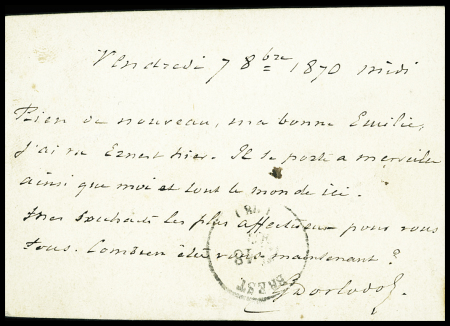 Vendredi 7 8bre 1870 midi
Rien de nouveau, ma bonne Emilie,
J'ai vu Ernest hier. Il se porte a merveille
ainsi que moi et tout le monde ici.
Mes souhaits les plus affectueux pour vous
tous. Combien êtes vous maintenant ?
BREST